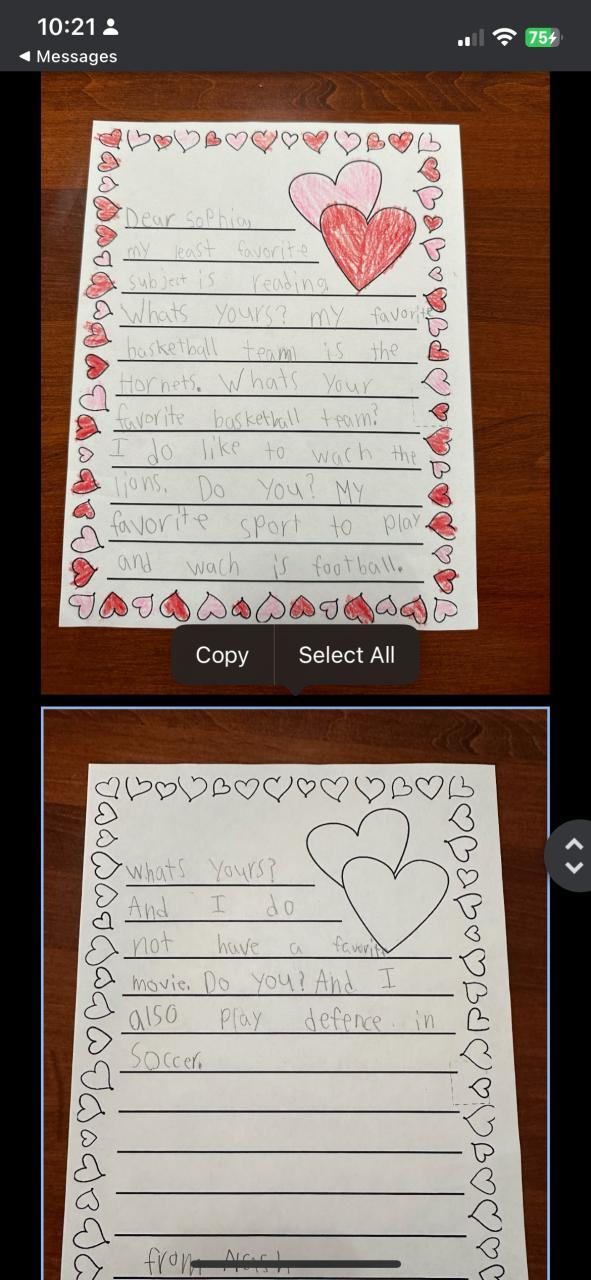 10:21
Messages
75
Dear Sophia,
my least favorite
subject is reading.
Whats yours? my favorite
basketball team is the
Hornets. Whats your
favorite basketball team?
I do like to wach the
lions. Do you? My
favorite sport to play
and wach is football.
Copy
Select All
whats yours?
And I do
not have a favorite
movie. Do you? And I
also play defence in
Soccer.
from